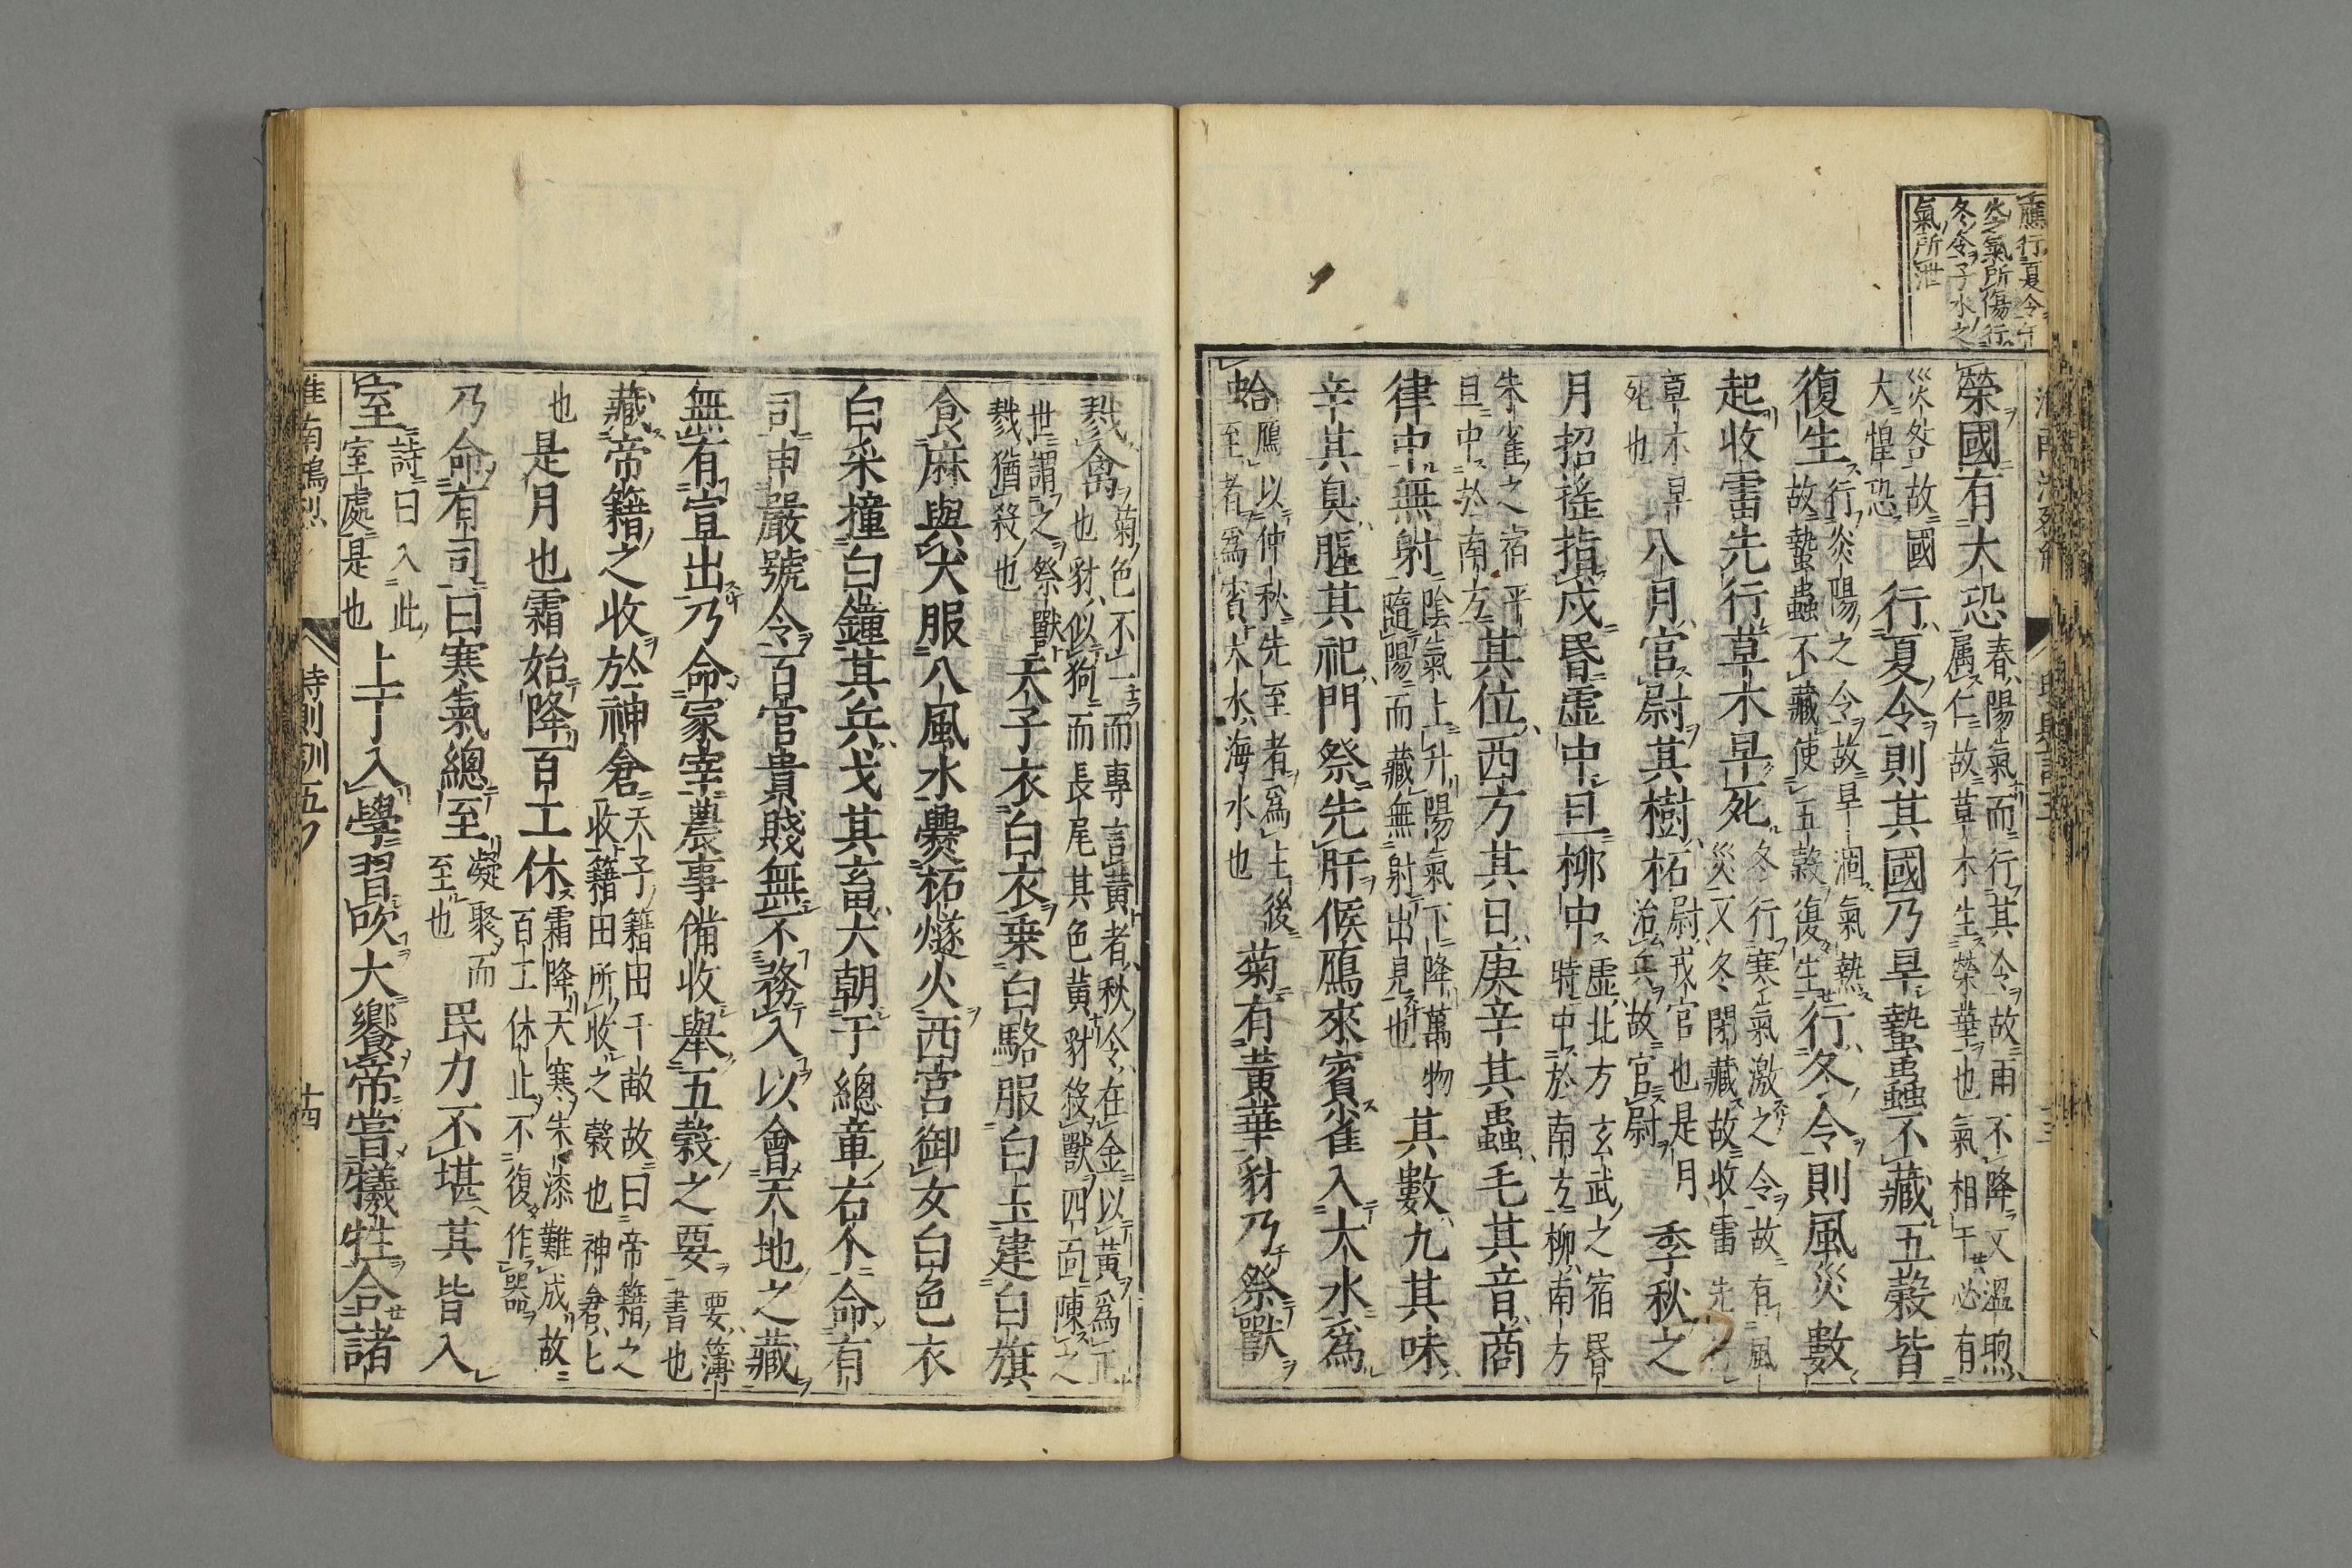 應行夏令午
火之氣所傷行
冬令子水之
氣所泄
榮國有大恐春陽氣而行其令故雨不降又溫煦
属仁故草木生榮華也氣相干必有
災咎故國
大惶恐行夏令則其國乃旱蟄蟲不藏五穀皆
復生行炎陽之令故旱涸氣熱
故蟄蟲不藏使五穀復生行冬令則風災數
起收雷先行草木早死冬行寒氣激之令故有風
災又冬閉藏故收雷先
草木早
死也八月官尉其樹柘尉戎官也是月
治兵故官尉季秋之
月招搖指戍昏虛中旦柳中虛北方玄武之宿昏
特中於南方柳南方
朱雀之宿平
旦中於南方其位西方其日庚辛其蟲毛其音商
律中無射陰氣上升陽氣下降萬物
隨陽而藏無射出見也其數九其味
辛其臭腥其祀門祭先肝候鴈來賓雀入大水爲
蛤鴈以仲秋先至者爲主後
至者爲賓大水海水也菊有黃華豺乃祭獸
戮禽菊色不一而專言黃者秋令在金以黃爲正
也豺似狗而長尾其色黃豺殺獸四面陳之
世謂之祭獸
戮猶殺也天子衣白衣乗白駱服白玉建白旗
食麻與犬服八風水爨柘燧火西宮御女白色衣
白采撞白鐘其兵戈其畜犬朝于總章右个命有
司申嚴號令百官貴賤無不務入以會天地之藏
無有宣出乃命冢宰農事備收舉五穀之要要簿
書也
藏帝籍之收於神倉天子籍田千畝故曰帝籍之
收籍田所收之穀也神倉匕
也是月也霜始降百工休霜降天寒朱漆難成故
百工休止不復作器
乃命有司曰寒氣總至凝聚而
至也民力不堪其皆入
室詩曰入此
室處是也上丁入學習吹大饗帝嘗犧牲合諸
淮南鴻烈 時則訓五 十四